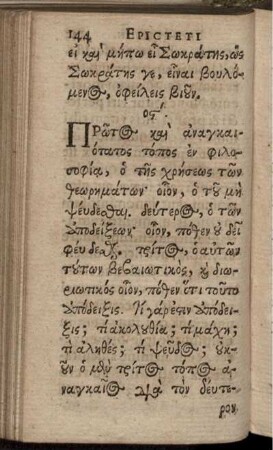 144 EPICTETI
εἰ καὶ μήπω εἶ Σωκράτης, ὡς
Σωκράτης γε, εἶναι βουλό-
μενος, ὀφείλεις βιοῦν.
ος΄.
ΠΡῶτος καὶ ἀναγκαι-
ότατος τόπος ἐν φιλο-
σοφίᾳ, ὁ τῆς χρήσεως τῶν
θεωρημάτων· οἷον, ὁ τοῦ μὴ
ψεύδεσθαι. δεύτερος, ὁ τῶν
ἀποδείξεων· οἷον, πόθεν οὐ δεῖ
ψεύδεσθαι. τρίτος, ὁ αὐτῶν
τούτων βεβαιωτικὸς, καὶ διορ-
ιωτικὸς οἷον, πόθεν ὅτι τοῦτο
ἀπόδειξις. τί γάρ ἐστιν ἀπόδει-
ξις; τί ἀκολουθία; τί μάχη;
τί ἀληθές; τί ψεῦδος; οὐκ-
οῦν ὁ μὲν τρίτος τόπος ἀ-
ναγκαῖος διὰ τὸν δεύτε-
ρον.